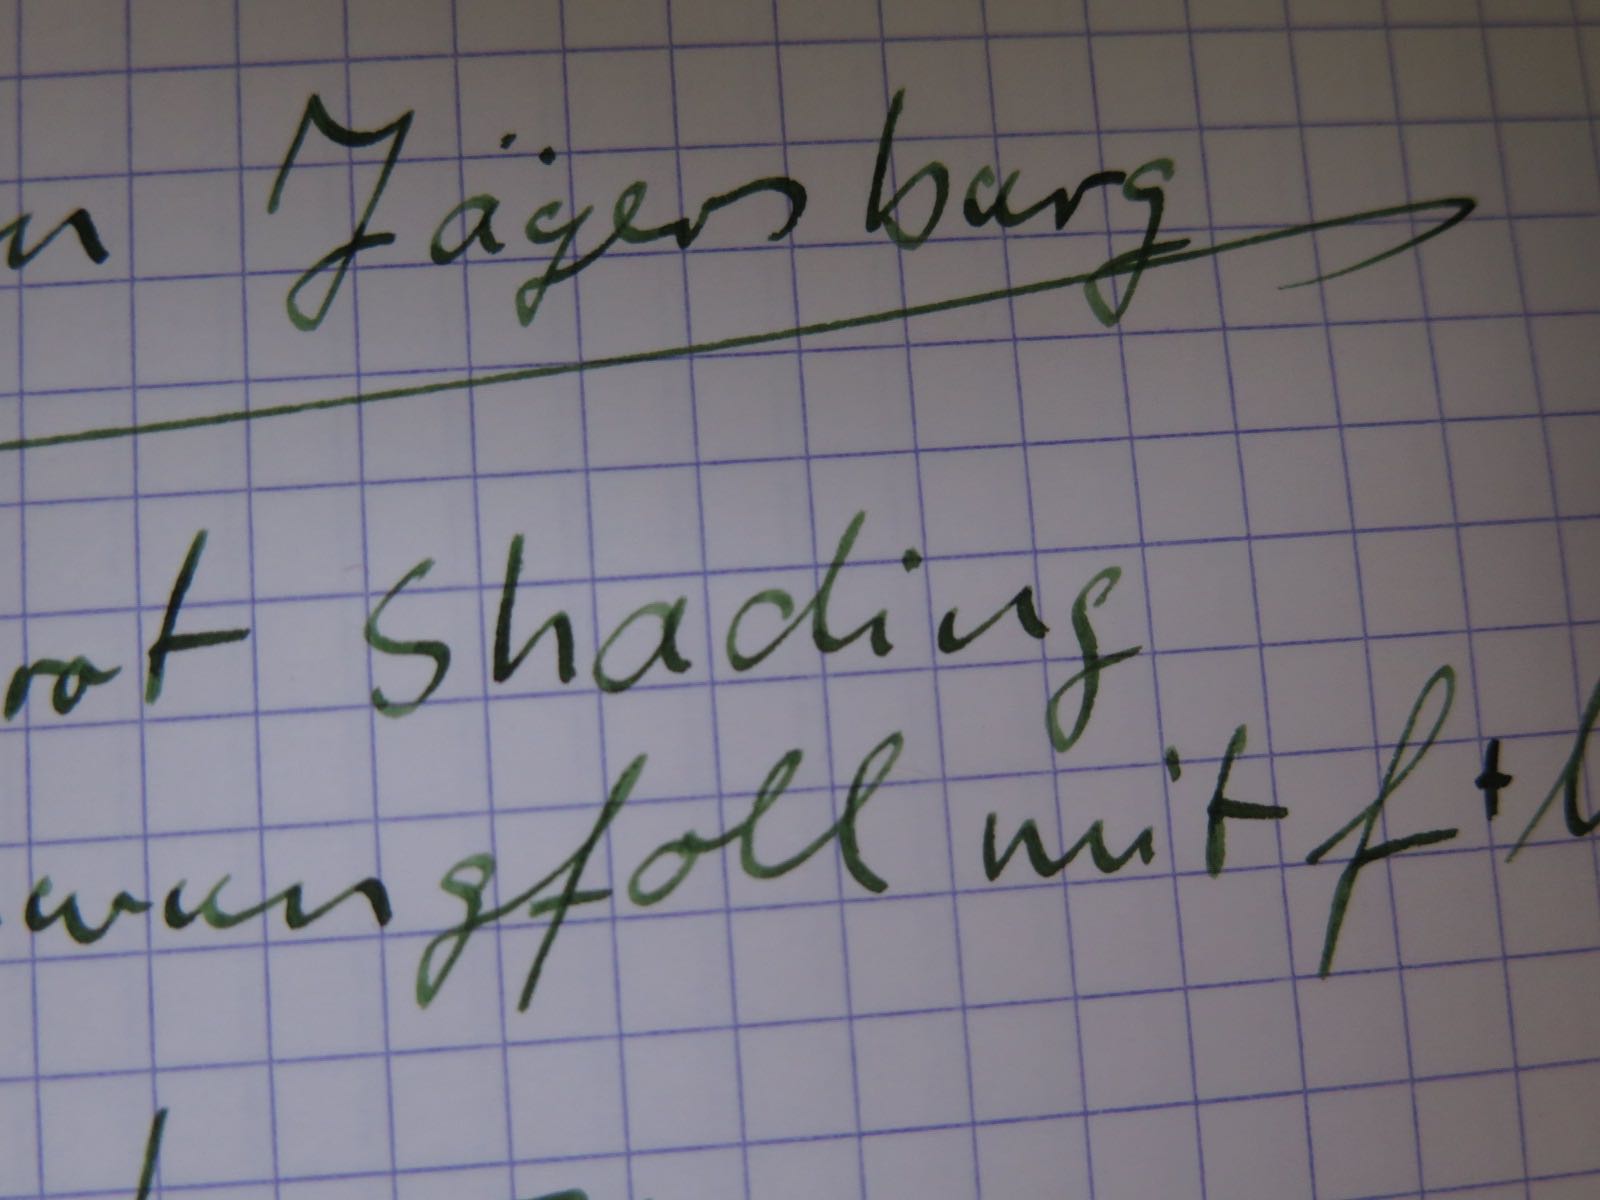 Jägersburg
rat Shading
wungfoll mit f +